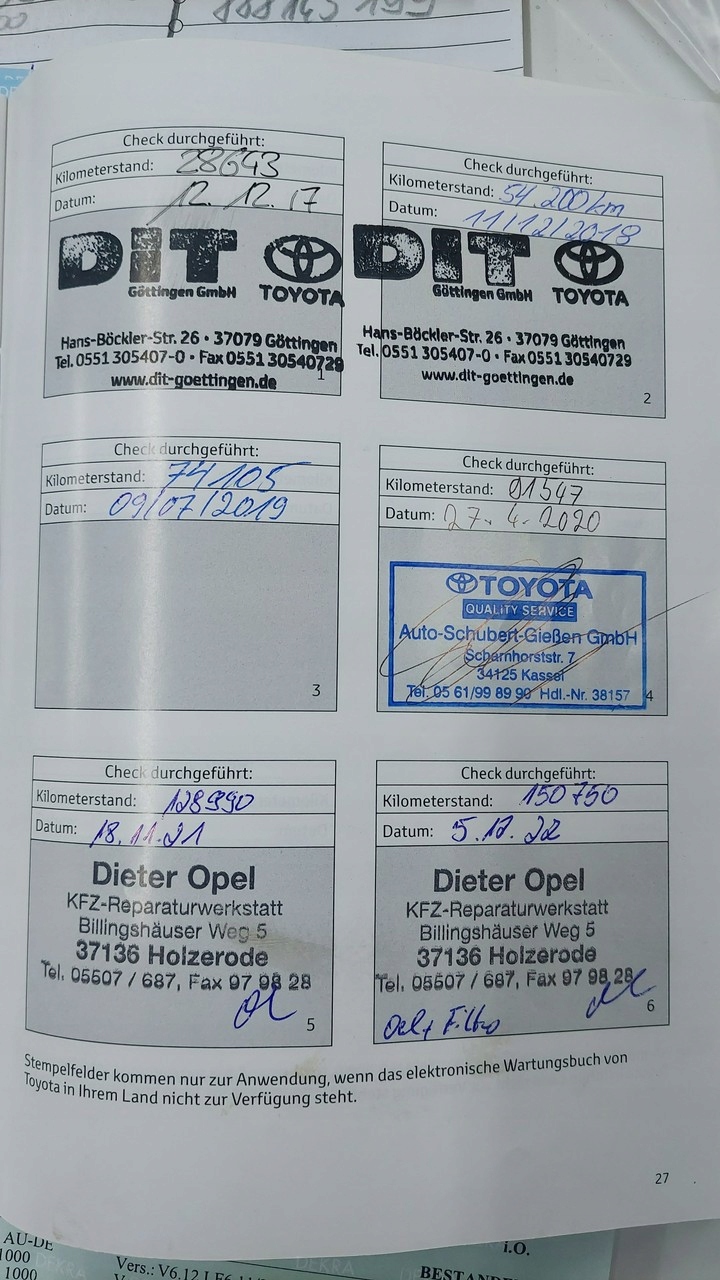 Check durchgeführt:
Kilometerstand: 28643
Datum: 12. 12. 17
DIT
Göttingen GmbH TOYOTA
Hans-Böckler-Str. 26 • 37079 Göttingen
Tel. 0551 305407-0 • Fax 0551 30540729
www.dit-goettingen.de
1
Check durchgeführt:
Kilometerstand: 54.200 km
Datum: 11/12/2018
DIT
Göttingen GmbH TOYOTA
Hans-Böckler-Str. 26 • 37079 Göttingen
Tel. 0551 305407-0 • Fax 0551 30540729
www.dit-goettingen.de
2
Check durchgeführt:
Kilometerstand: 74105
Datum: 09/07/2019
3
Check durchgeführt:
Kilometerstand: 91547
Datum: 27. 4. 2020
TOYOTA
QUALITY SERVICE
Auto-Schubert-Gießen GmbH
Scharnhorststr. 7
34125 Kassel
Tel. 05 61/99 89 90 Hdl.-Nr. 38157
4
Check durchgeführt:
Kilometerstand: 128990
Datum: 18.11.21
Dieter Opel
KFZ-Reparaturwerkstatt
Billingshäuser Weg 5
37136 Holzerode
Tel. 05507 / 687, Fax 97 98 28
5
Check durchgeführt:
Kilometerstand: 150750
Datum: 5.12.22
Dieter Opel
KFZ-Reparaturwerkstatt
Billingshäuser Weg 5
37136 Holzerode
Tel. 05507 / 687, Fax 97 98 28
Oel + Filter
6
Stempelfelder kommen nur zur Anwendung, wenn das elektronische Wartungsbuch von
Toyota in Ihrem Land nicht zur Verfügung steht.
27
AU-DE
1000
1000
i.O.
DEKRA